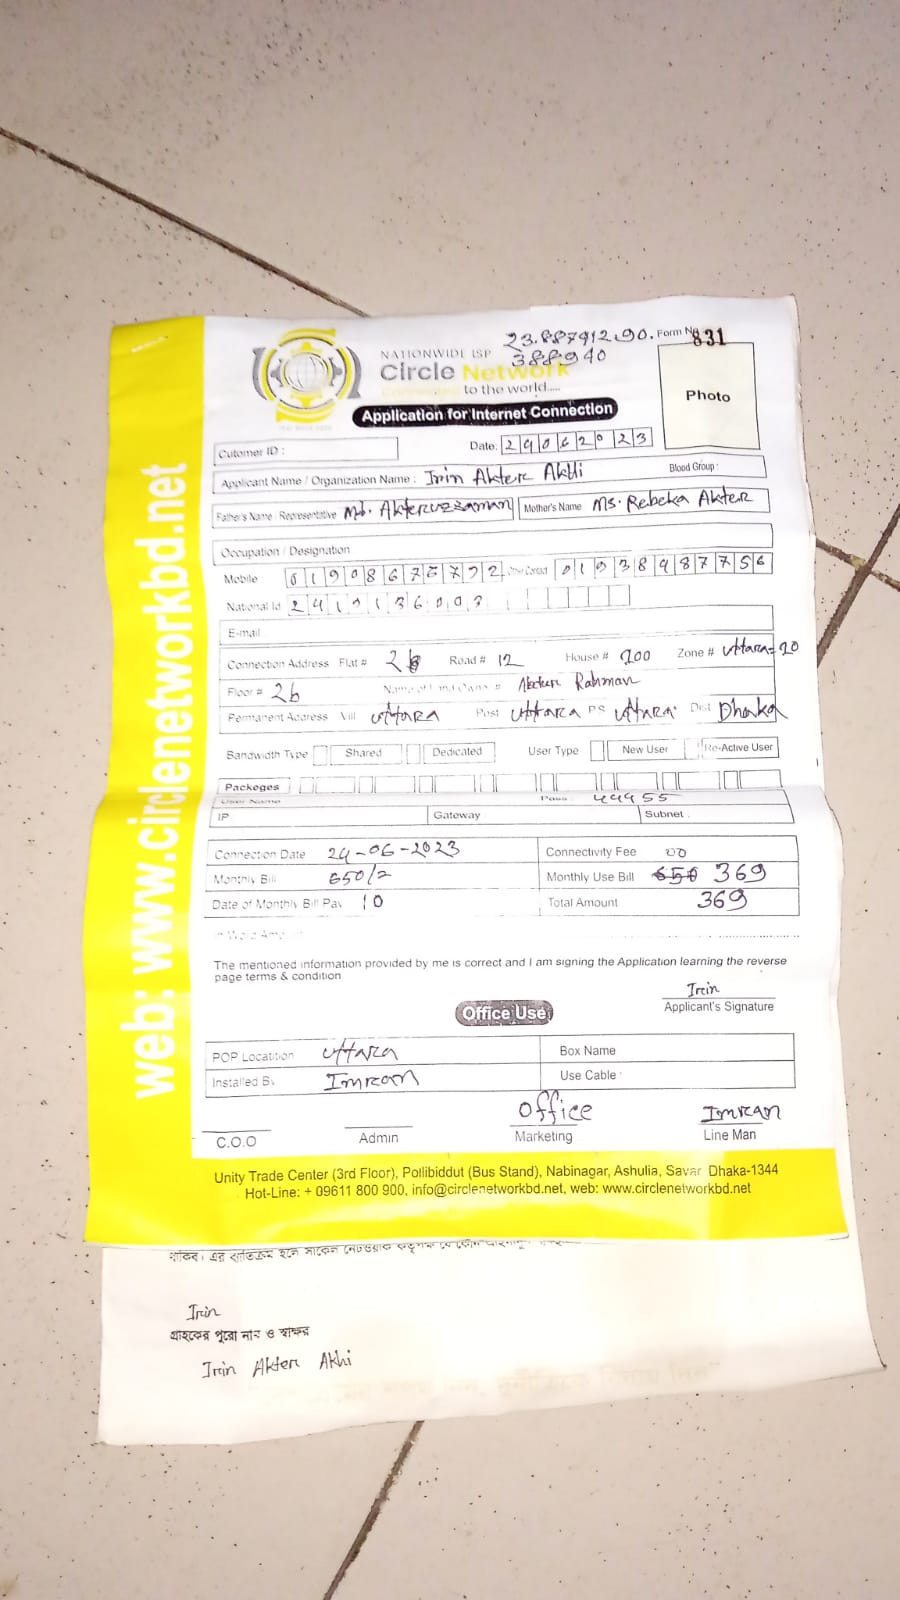 web: www.circlenetworkbd.net
23.887912.90.
388940
Form No 831
NATIONWIDE ISP
Circle Network
to the world.....
Photo
Application for Internet Connection
Cutomer ID :
Date: 24062023
Applicant Name / Organization Name : Irin Akter Akhi
Blood Group :
Father's Name / Representative Md. Akteruzzaman Mother's Name Ms. Rebeka Akter
Occupation / Designation
Mobile 01908676792 Other Contact 01938487756
National Id
E-mail
Connection Address Flat # Road # 12 House # Zone # Uttara-
Floor # 2b Akter Rahman
Permanent Address Vill Uttara Post Uttara PS Uttara Dist Dhaka
Bandwidth Type Shared Dedicated User Type New User Re-Active User
Packeges
User Name Pass : 44455
IP Gateway Subnet :
Connection Date 24-06-2023 Connectivity Fee 00
Monthly Bill 650/2 Monthly Use Bill 650 369
Date of Monthly Bill Pay 10 Total Amount 369
In Word Amount
The mentioned information provided by me is correct and I am signing the Application learning the reverse
page terms & condition
Irin
Applicant's Signature
Office Use
POP Locatition Uttara Box Name
Installed By Imran Use Cable :
Office Imran
C.O.O Admin Marketing Line Man
Unity Trade Center (3rd Floor), Pollibiddut (Bus Stand), Nabinagar, Ashulia, Savar Dhaka-1344
Hot-Line: + 09611 800 900, info@circlenetworkbd.net, web: www.circlenetworkbd.net
Irin
গ্রাহকের পুরো নাম ও স্বাক্ষর
Irin Akter Akhi